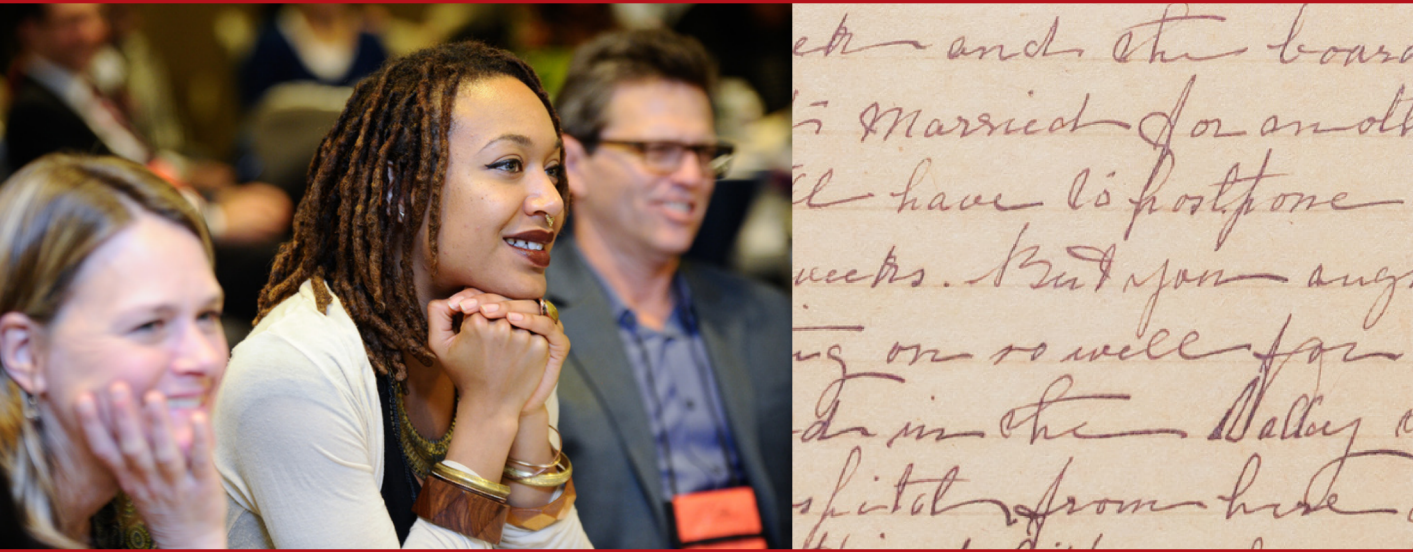 er and the board
is married for anoth
ll have to postpone
weeks. But you aug
ng on so well for
d in the Valley
spital from here